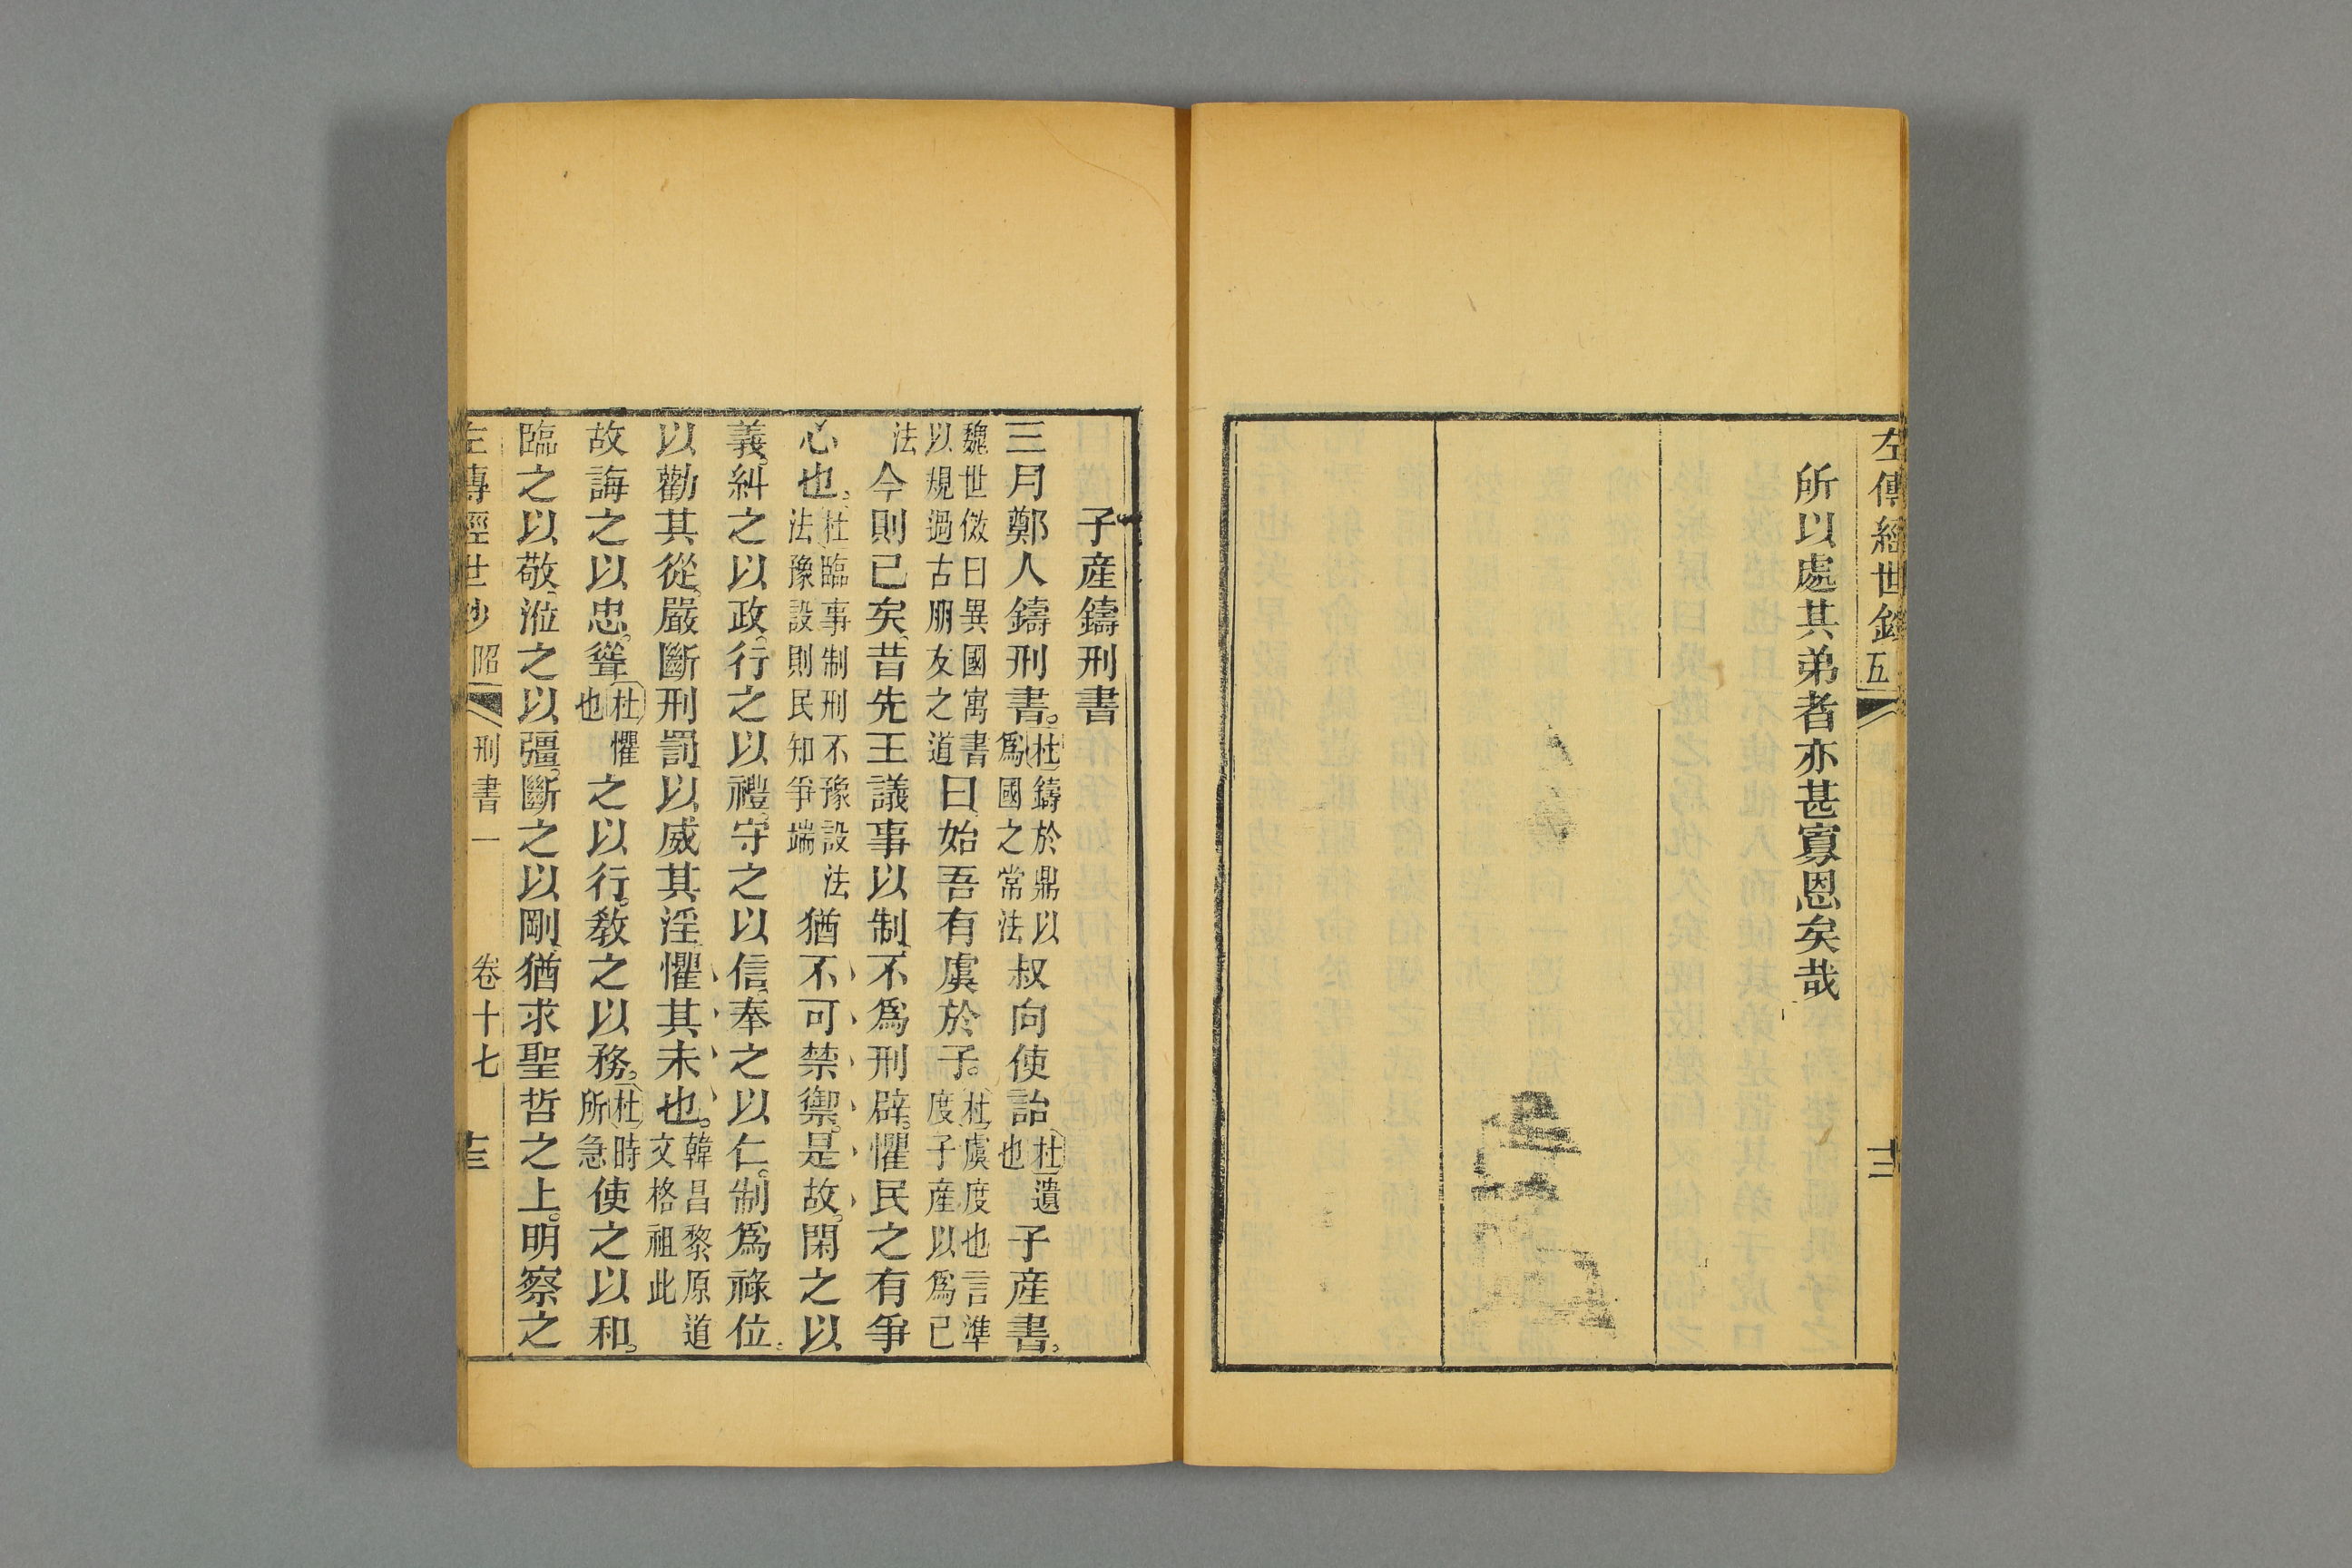 左傳經世鈔 五 十三
所以處其弟者亦甚寡恩矣哉
子產鑄刑書
三月鄭人鑄刑書。杜鑄於鼎以爲國之常法叔向使詒杜遺也子產書。
魏世傚曰異國寓書以規過古朋友之道曰始吾有虞於子。杜虞度也言準度子產以爲已
法今則已矣昔先王議事以制不爲刑辟懼民之有爭
心也。杜臨事制刑不豫設法法豫設則民知爭端猶不可禁禦是故閑之以
義糾之以政行之以禮守之以信奉之以仁制爲祿位
以勸其從嚴斷刑罰以威其淫懼其未也。韓昌黎原道文格祖此
故誨之以忠聳杜懼也之以行教之以務杜時所急使之以和
臨之以敬涖之以彊斷之以剛猶求聖哲之上明察之
左傳經世鈔 昭 刑書一 卷十七 十三